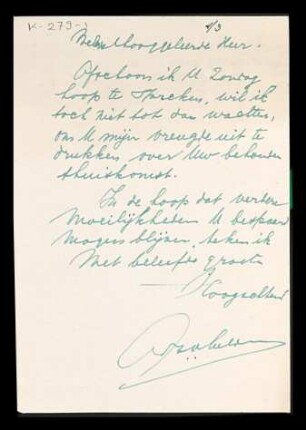 K-279-1
Hooggeleerde Heer.
Ofschoon ik U Zondag
hoop te spreken, wil ik
toch niet tot dan wachten,
om U mijn vreugde uit te
drukken over Uw behouden
thuiskomst.
In de hoop dat verdere
moeilijkheden U bespaard
mogen blijven, teken ik
Met beleefde groeten
Hoogachtend